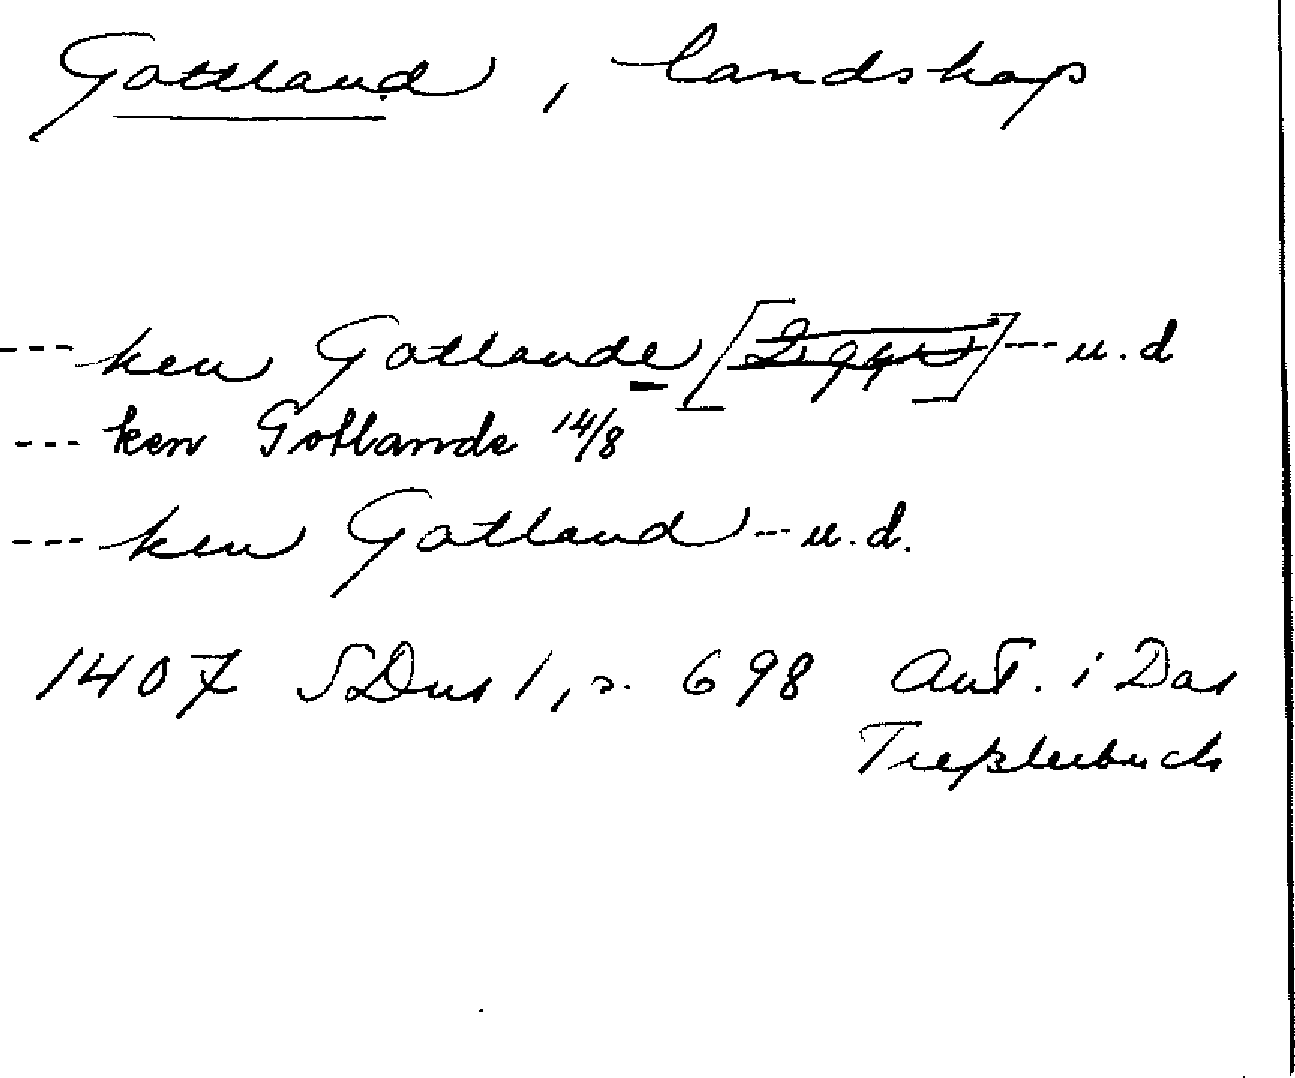 Gottland, landskap
--- ken Gotlande [2 ggr] --- u.d
--- ken Gotlande 14/8
--- ken Gotland -- u.d.
1407 SDns 1, s. 698 Ant. i Das
Treßlerbuch